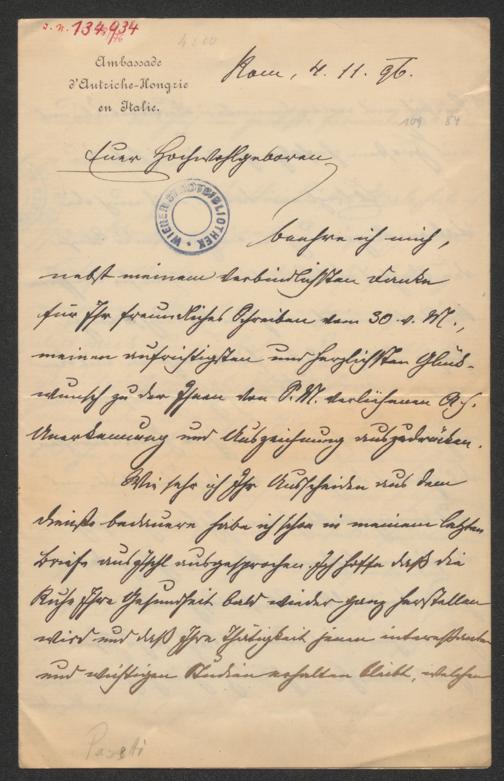 J. N. 134.934
Ambassade
d'Autriche-Hongrie
en Italie.
Rom, 4. 11. 96.
109 84
Euer Hochwohlgeboren
WIENER STADTBIBLIOTHEK
beehre ich mich,
nebst meinem verbindlichsten Danke
für Ihr freundliches Schreiben vom 30 v. M.,
meinen aufrichtigsten und herzlichsten Glück-
wunsch zu der Ihnen von S. M. verliehenen
Anerkennung und Auszeichnung auszudrücken.
Wie sehr ich Ihr Ausscheiden aus dem
Dienste bedauere habe ich schon in meinem letzten
Briefe ausgesprochen. Ich hoffe daß die
Ruhe Ihre Gesundheit bald wieder ganz herstellen
wird und daß Ihre Thätigkeit jenen interessanten
und wichtigen Studien erhalten bleibt, welchen
Pasetti